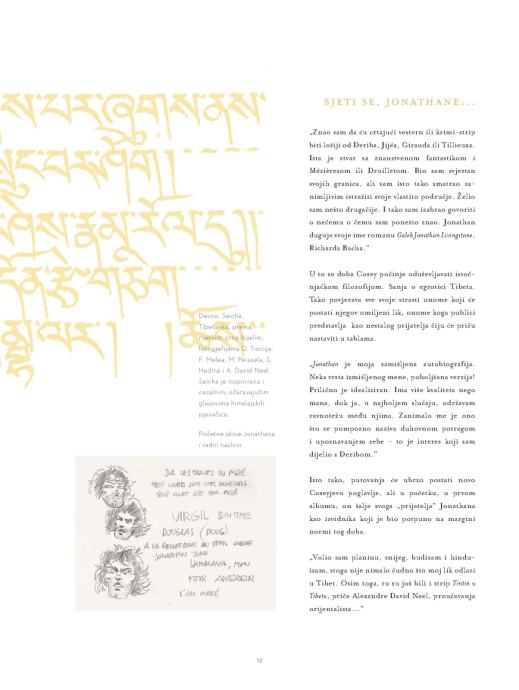 SJETI SE, JONATHANE...
„Znao sam da ću crtajući vestern ili krimi-strip
biti lošiji od Deriba, Jijéa, Girauda ili Tillieuxa.
Ista je stvar sa znanstvenom fantastikom i
Mézièresom ili Druilletom. Bio sam svjestan
svojih granica, ali sam isto tako smatrao za-
nimljivim istražiti svoje vlastito područje. Želio
sam nešto drugačije. I tako sam izabrao govoriti
o nečemu o čemu sam ponešto znao. Jonathan
duguje svoje ime romanu Galeb Jonathan Livingstone,
Richarda Bacha.”
U to se doba Cosey počinje oduševljavati istoč-
njačkom filozofijom. Sanja o egzotici Tibeta.
Tako povjerava sve svoje strasti onome koji će
postati njegov omiljeni lik, onome koga publici
predstavlja kao nestalog prijatelja čiju će priču
nastaviti u tablama.
„Jonathan je moja zamišljena autobiografija.
Neka vrsta izmišljenog mene, poboljšana verzija!
Prilično je idealiziran. Ima više kvaliteta nego
mana, dok ja, u najboljem slučaju, održavam
ravnotežu među njima. Zanimalo me je ono
što se pompozno naziva duhovnom potragom
i upoznavanjem sebe – to je interes koji sam
dijelio s Deribom.”
Isto tako, putovanja će ubrzo postati novo
Coseyjevo poglavlje, ali u početku, u prvom
albumu, on šalje svoga „prijatelja” Jonathana
kao izvidnika koji je bio potpuno na margini
normi tog doba.
„Volio sam planinu, snijeg, budizam i hindu-
izam, stoga nije nimalo čudno što moj lik odlazi
u Tibet. Osim toga, tu su još bili i strip Tintin u
Tibetu, priče Alexandre David Neel, proučavanja
orijentalista...”
Desno: Saïcha,
Tibetanka, prema
rijetkim, crno-bijelim,
fotografijama G. Tuccija,
F. Melea, M. Peissela, S.
Hedina i A. David Neel.
Saïcha je inspirirana i
nazalnim, očaravajućim
glasovima himalajskih
pjevačica.
Početne skice Jonathana
i radni naslovi.
SUR LES TRACES DU PASSÉ
VIRGIL SUNTIME
DOUGLAS (DOUG)
A LA RECHERCHE DU TEMPS OUBLIÉ
JONATHAN JUMP
HIMALAYA, MON
TOIT INTÉRIEUR
L'AMI OUBLIÉ
12